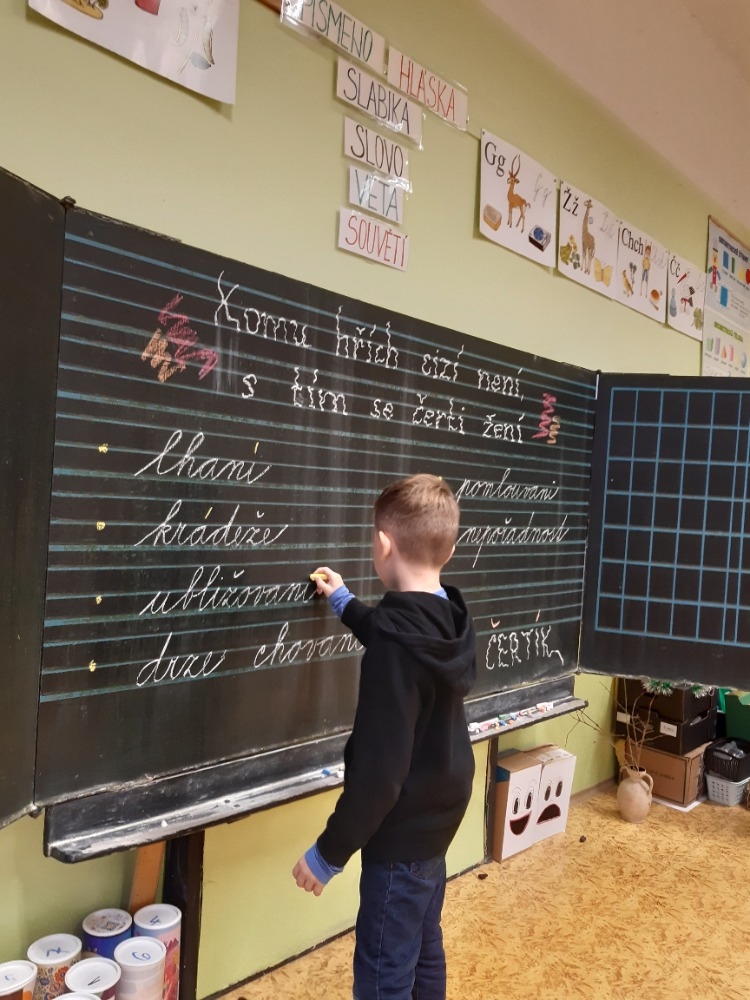 PÍSMENO
HLÁSKA
SLABIKA
SLOVO
VĚTA
SOUVĚTÍ
Gg
Žž
Chch
Čč
Komu hřích cizí není,
s tím se čerti žení
lhaní
krádeže
ubližovaní
drze chovaní
pomlouvani
nepořádnost
ČERTÍK